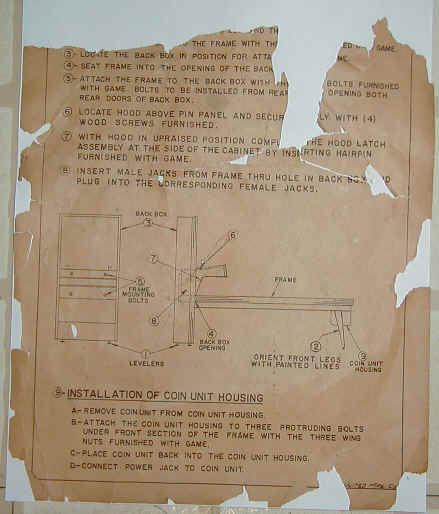 THE FRAME WITH TH
GAME.
3- LOCATE THE BACK BOX IN POSITION FOR ATTA
4- SEAT FRAME INTO THE OPENING OF THE BACK
5- ATTACH THE FRAME TO THE BACK BOX WITH BOLTS FURNISHED
WITH GAME. BOLTS TO BE INSTALLED FROM REAR OPENING BOTH
REAR DOORS OF BACK BOX.
6 LOCATE HOOD ABOVE PIN PANEL AND SECUR LY WITH (4)
WOOD SCREWS FURNISHED.
7 WITH HOOD IN UPRAISED POSITION COMPL THE HOOD LATCH
ASSEMBLY AT THE SIDE OF THE CABINET BY INSERTING HAIRPIN
FURNISHED WITH GAME.
8 INSERT MALE JACKS FROM FRAME THRU HOLE IN BACK BOX
PLUG INTO THE CORRESPONDING FEMALE JACKS.
BACK BOX
3
6
7
5
FRAME
MOUNTING
BOLTS
8
FRAME
4
BACK BOX
OPENING
2
9
COIN UNIT
HOUSING
ORIENT FRONT LEGS
WITH PAINTED LINES
1
LEVELERS
9- INSTALLATION OF COIN UNIT HOUSING
A- REMOVE COIN UNIT FROM COIN UNIT HOUSING.
B- ATTACH THE COIN UNIT HOUSING TO THREE PROTRUDING BOLTS
UNDER FRONT SECTION OF THE FRAME WITH THE THREE WING
NUTS FURNISHED WITH GAME.
C- PLACE COIN UNIT BACK INTO THE COIN UNIT HOUSING.
D- CONNECT POWER JACK TO COIN UNIT.